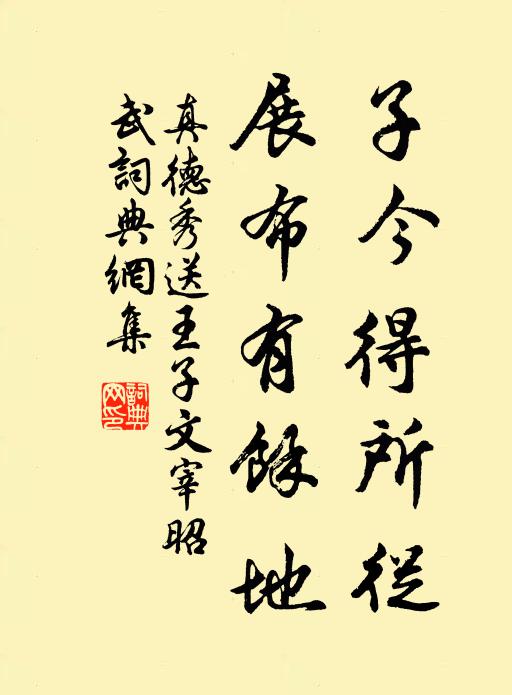 子今得所從
展布有餘地
真德秀送王子文宰昭
武詞典網集
詞典网印